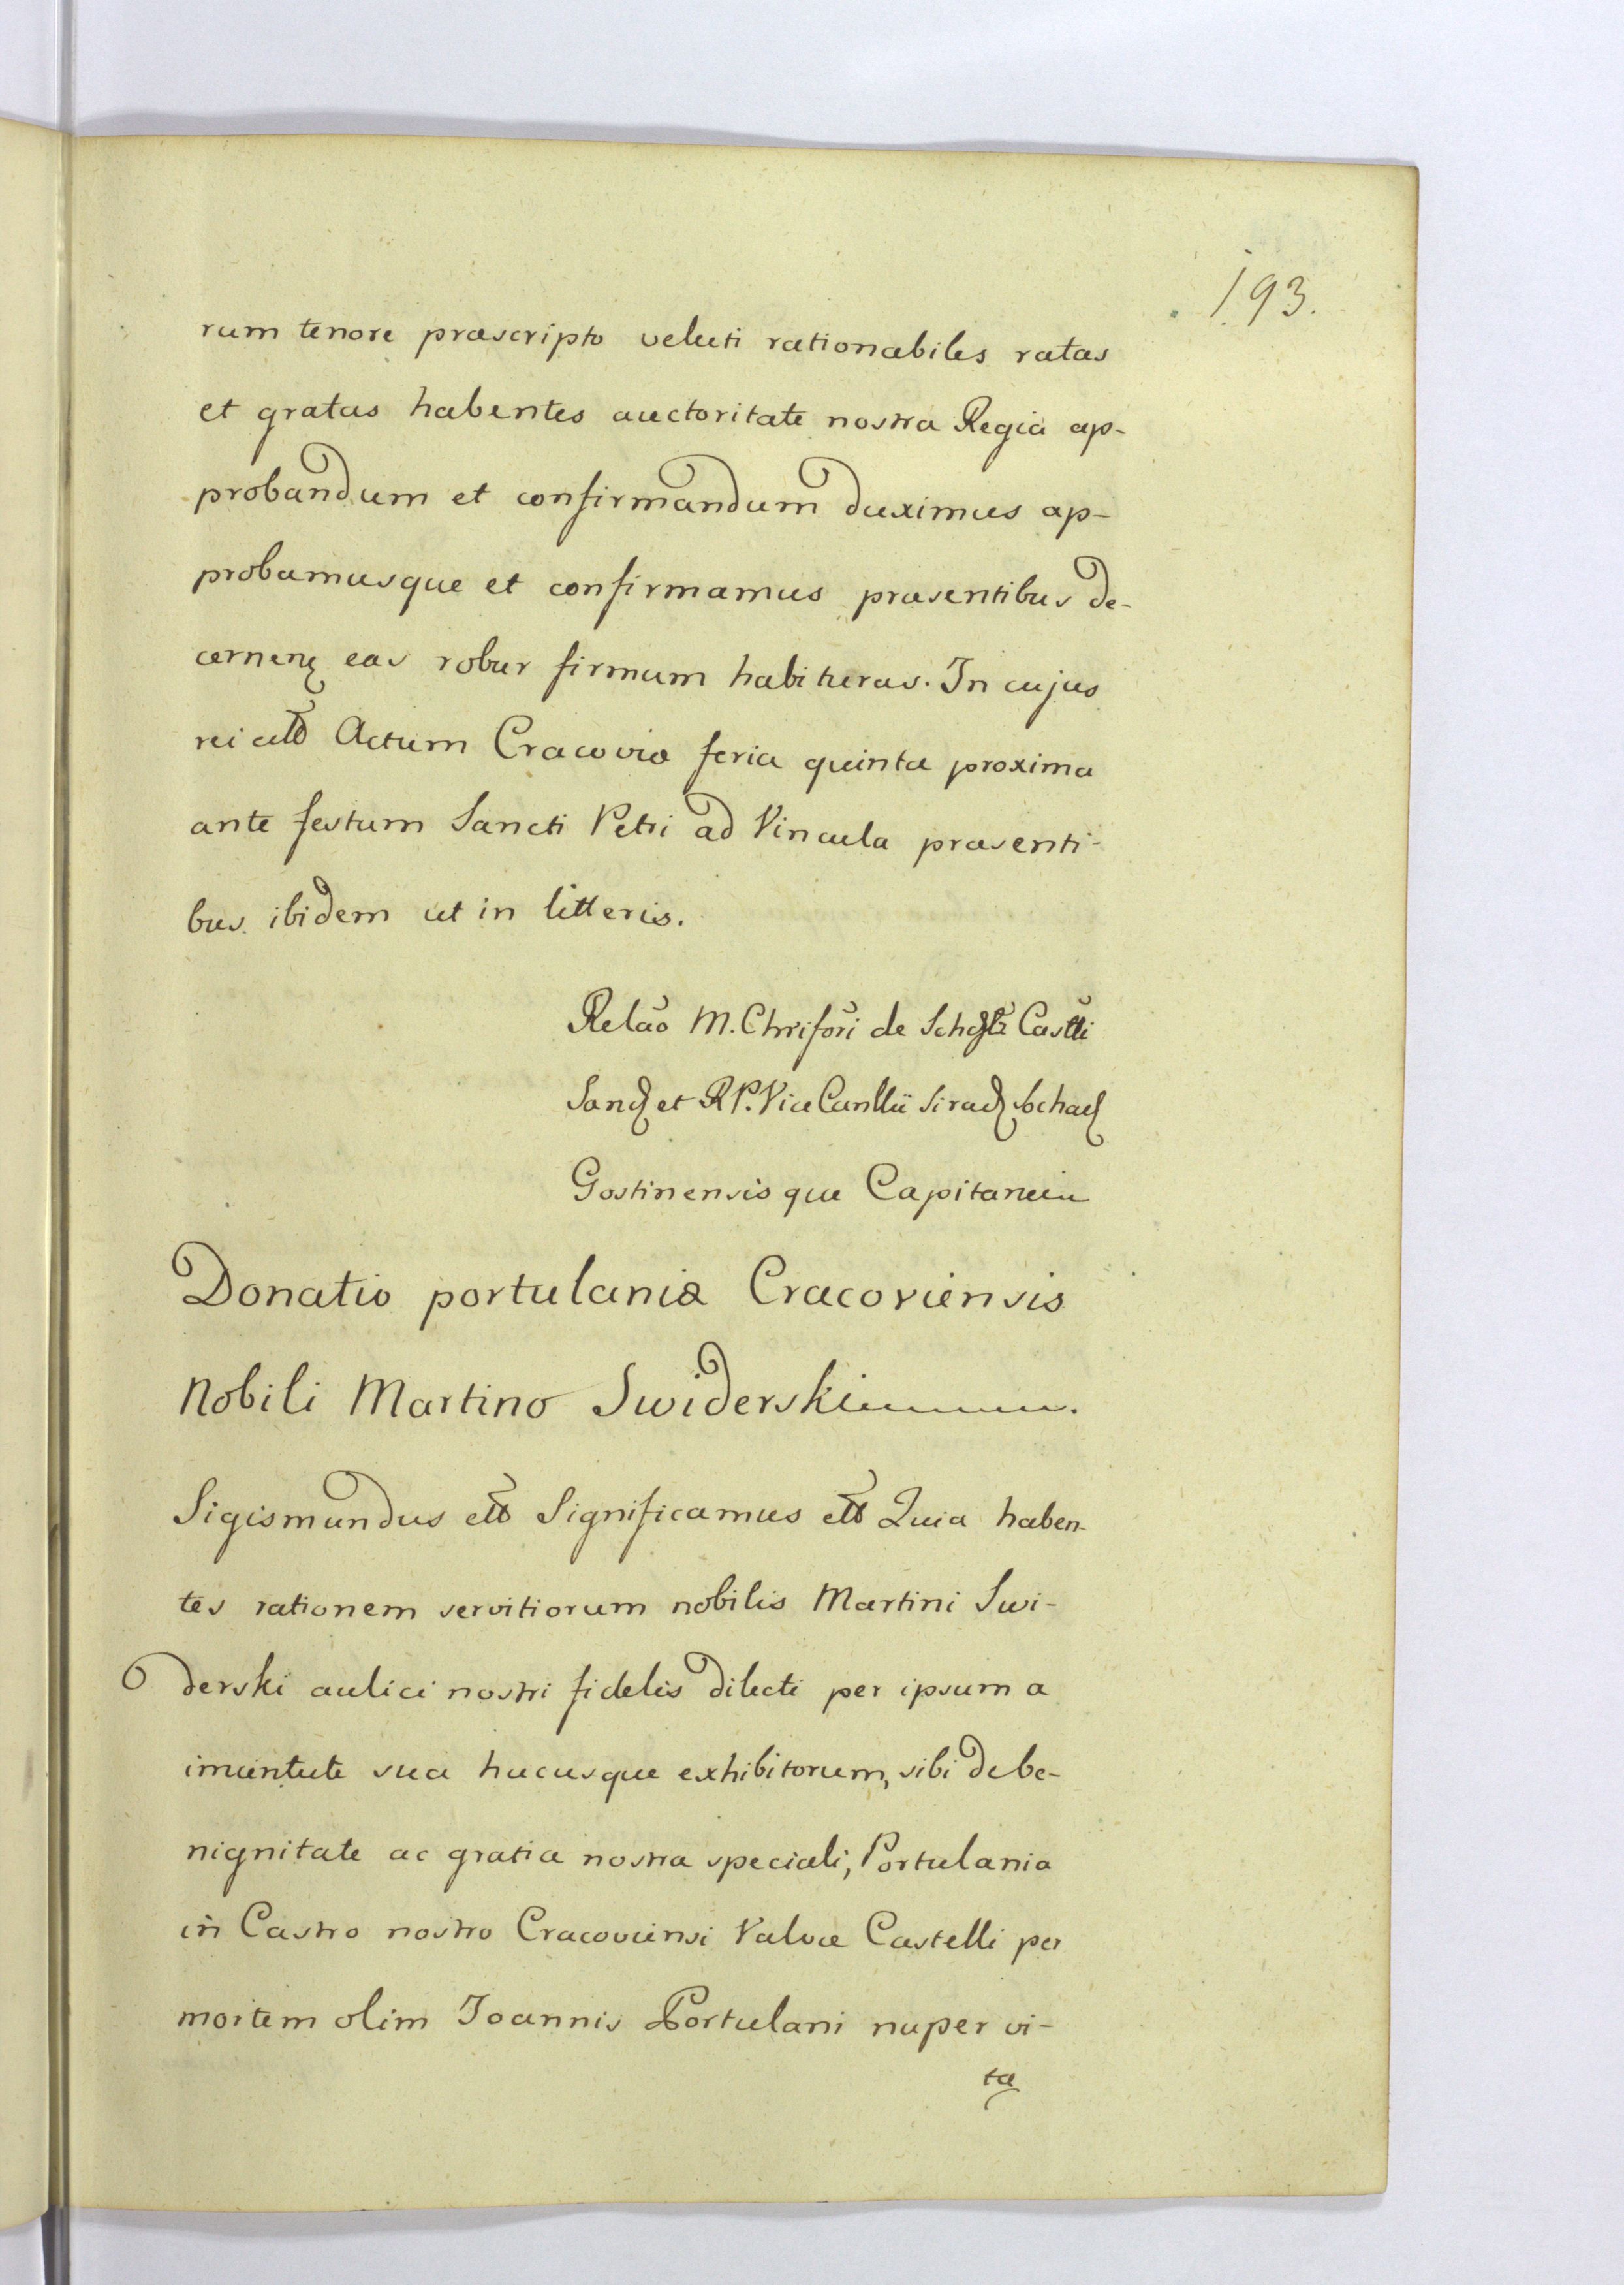 193.
rum tenore præscripto veluti rationabiles ratas
et gratas habentes auctoritate nostra Regia ap-
probandum et confirmandum duximus ap-
probamusque et confirmamus præsentibus de-
cernen eas robur firmum habituras. In cujus
rei Actum Cracoviæ feria quinta proxima
ante festum Sancti Petri ad Vincula præsenti-
bus ibidem ut in litteris.
Relão M. Chrisfori de Castti
Sand et R P. Vice Canllii Sirad Sochac
Gostinensis que Capitanei
Donatio portulaniæ Cracoviensis
Nobili Martino Swiderski.
Sigismundus ett Significamus ett Quia haben-
tes rationem servitiorum nobilis Martini Swi-
derski aulici nostri fidelis dilecti per ipsum a
sua hucusque exhibitorum, sibi de be-
nignitate ac gratia nostra speciali, Portulania
in Castro nostro Cracoviensi Valvæ Castelli per
mortem olim Joannis Portulani nuper vi-
ta